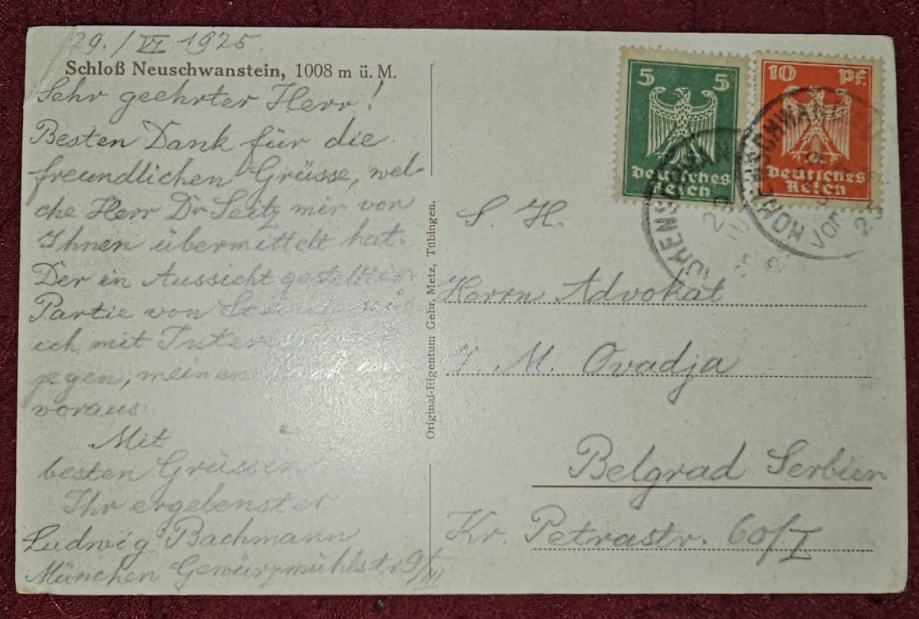 29./VI 1925
Schloß Neuschwanstein, 1008 m ü. M.
Sehr geehrter Herr!
Besten Dank für die
freundlichen Grüsse, wel-
che Herr Dr Seitz mir von
Ihnen übermittelt hat.
Der in Aussicht gestellten
Partie von
ich mit
gegen, meinen
voraus
Mit
besten Grüssen
Ihr ergebenster
Ludwig Bachmann
München Gewürzmühlstr 9/III
Original-Eigentum Gebr. Metz, Tübingen.
5 5
Deutsches
Reich
10 Pf.
Deutsches
Reich
HOHENSCHWAN
VOR
S. H.
Herrn Advokat
M. Ovadja
Belgrad Serbien
Kr. Petrastr. 60/I